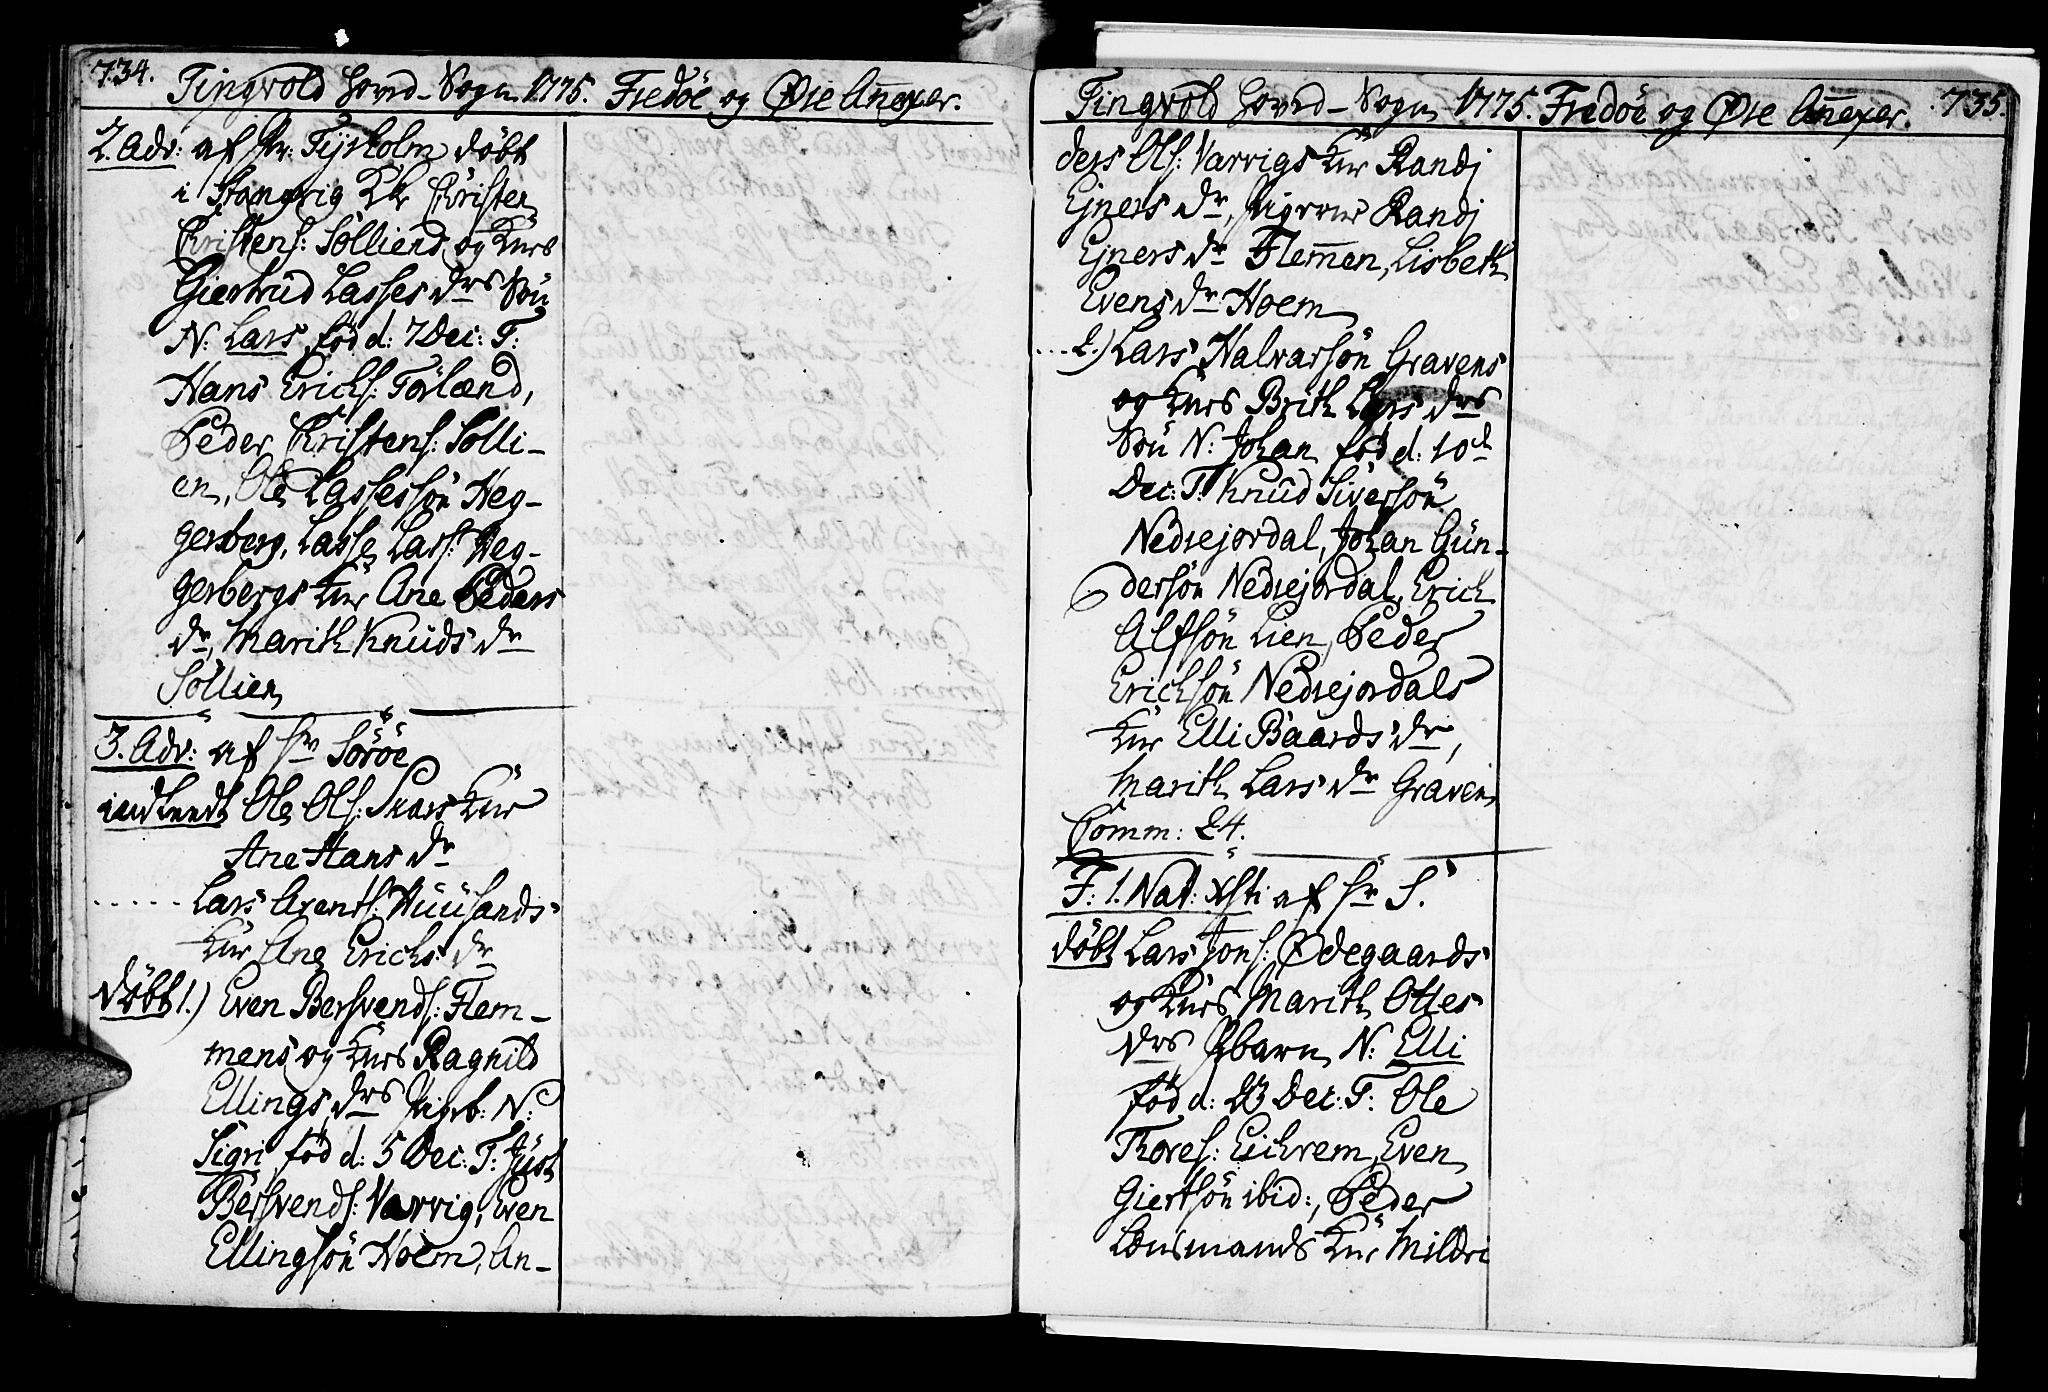 734. Tingvold Hovd-Sogn 1775. Fredöe og Øre Anexer.
2. Adv: af Hr: Tyrholm döbt
i Stangvig Kk Christen
Christens: Solliens og Kürs
Giertrud Lasses drs Sön
N: Lars föd d: 7 Dec: T:
Hans Erichs: Torlænd,
Peder Christens: Solli-
en, Ole Lassessön Heg-
gerberg, Lasse Lars: Heg-
gerbergs Kür Ane Peders
dr, Marith Knüds dr
Söllien
3. Adv: af Hr Söröe
indledt Ole Ols: Skars Kür
Ane Hans dr
..... Lars Arents: Hüüsands
Kür Ane Erichs dr
döbt 1.) Even Bersvends: Flem-
mens og Kürs Ragnild
Ellings drs Pigeb: N:
Sigri föd d: 5 Dec: T: Just
Bersvends: Varvig, Even
Ellingsön Hoem, An-
Tingvold Hovd-Sogn 1775. Fredöe og Øre Anexer. 735.
ders Ols: Varvigs Kür Randj
Ejners dr, Pigerne Randj
Ejners dr Flemen, Lisbeth
Evens dr Hoem
... 2.) Lars Halvarsön Gravens
og Kürs Brith Lars drs
Sön N: Johan föd d: 10d
Dec: T: Knüd Siversön
Nedrejordal, Johan Gün-
dersön Nedrejordal, Erich
Alfsön Lien, Peder
Erichsön Nedrejordals
Kür Elli Baards dr,
Marith Lars dr Graven
Comm: 24.
F: 1. Nat: Xsti af Hr S.
döbt Lars Jons: Ødegaards
og Kürs Marith Ottes
drs Pbarn N: Elli
föd d: 23 Dec: T: Ole
Thores: Eichrem, Even
Giertsön ibid:, Peder
Lensmands Kür Mildri